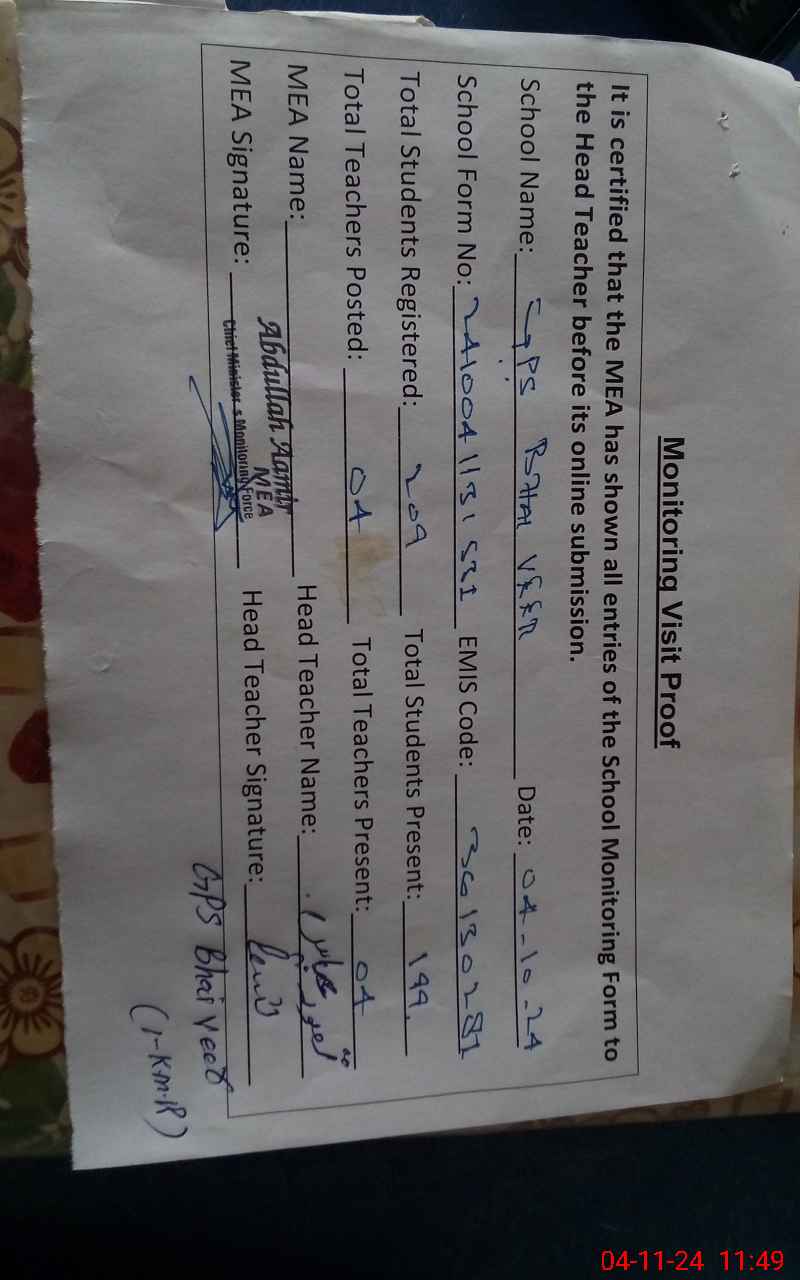 Monitoring Visit Proof
It is certified that the MEA has shown all entries of the School Monitoring Form to
the Head Teacher before its online submission.
School Name: GPS Bhai Veer Date: 04-10-24
School Form No: EMIS Code:
Total Students Registered: 209 Total Students Present: 199
Total Teachers Posted: 04 Total Teachers Present: 04
MEA Name: Abdullah Aamir Head Teacher Name:
MEA
Chief Minister's Monitoring Force
MEA Signature: Head Teacher Signature:
GPS Bhai Veer
(1-KM-R)
04-11-24 11:49